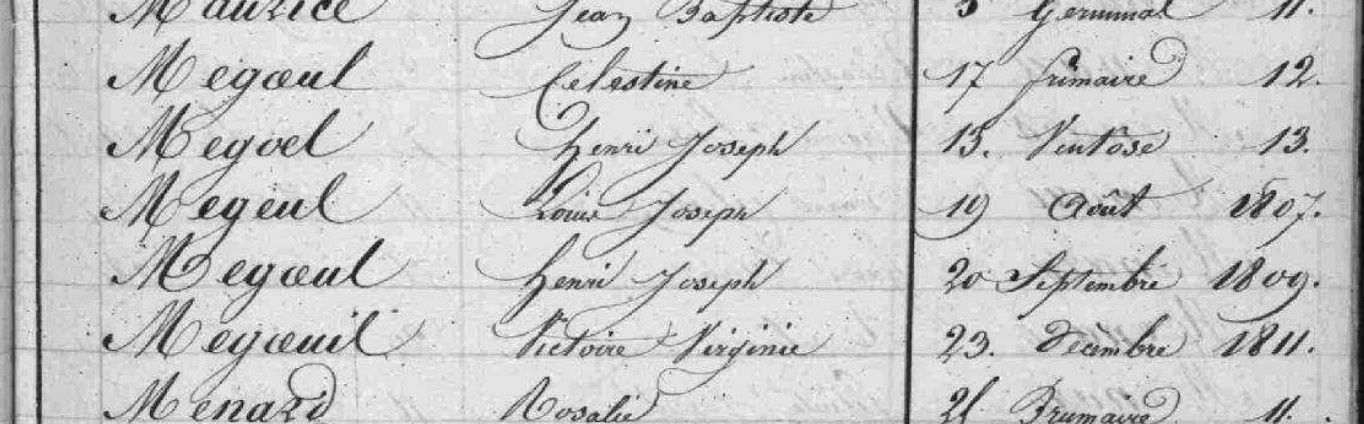 Maurice Jean Baptiste 5 Germinal 11.
Megœul Célestine 17 frimaire 12.
Megoel henri Joseph 13. Ventôse 13.
Megeul Louis Joseph 19 Août 1807.
Megœul henri Joseph 20 Septembre 1809.
Megœuil Victoire Virginie 23. Décembre 1811.
Menard Rosalie Brumaire 11.